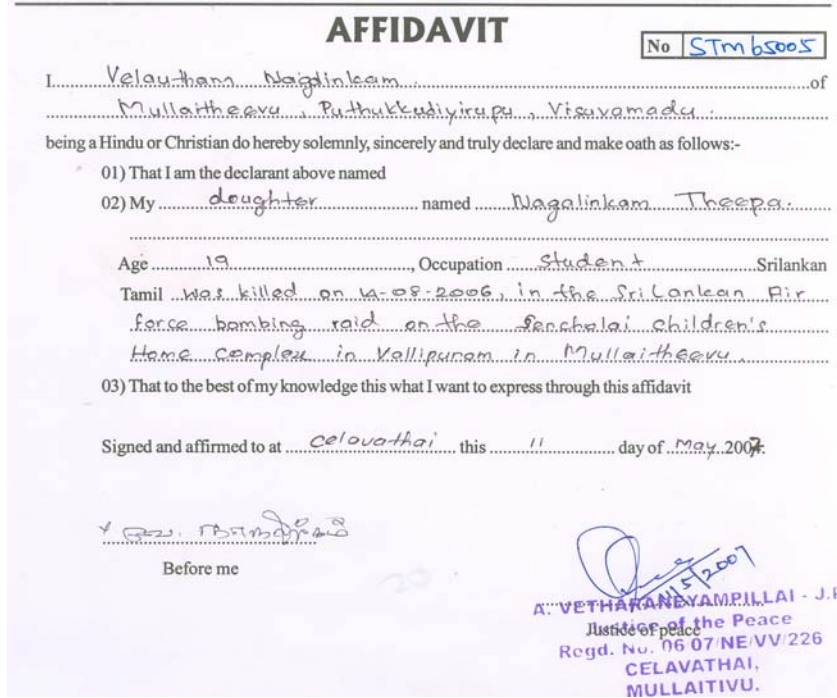 AFFIDAVIT
No STM65005
I Velautham Nagalinkam of
Mullaitheevu, Puthukkudiyirupu, Visuvamadu.
being a Hindu or Christian do hereby solemnly, sincerely and truly declare and make oath as follows:-
01) That I am the declarant above named
02) My doughter named Nagalinkam Theepa.
Age 19, Occupation Student Srilankan
Tamil was killed on 14-08-2006, in the SriLankan Air
force bombing raid on the Senchalai children's
Home complex in Vallipunam in Mullaitheevu.
03) That to the best of my knowledge this what I want to express through this affidavit
Signed and affirmed to at Celavathai this 11 day of May 2007.
Before me
11/5/2007
A. VETHARANEYAMPILLAI - J.P
Justice of peace
Justice of the Peace
Regd. No. 06 07/NE/VV/226
CELAVATHAI,
MULLAITIVU.
20